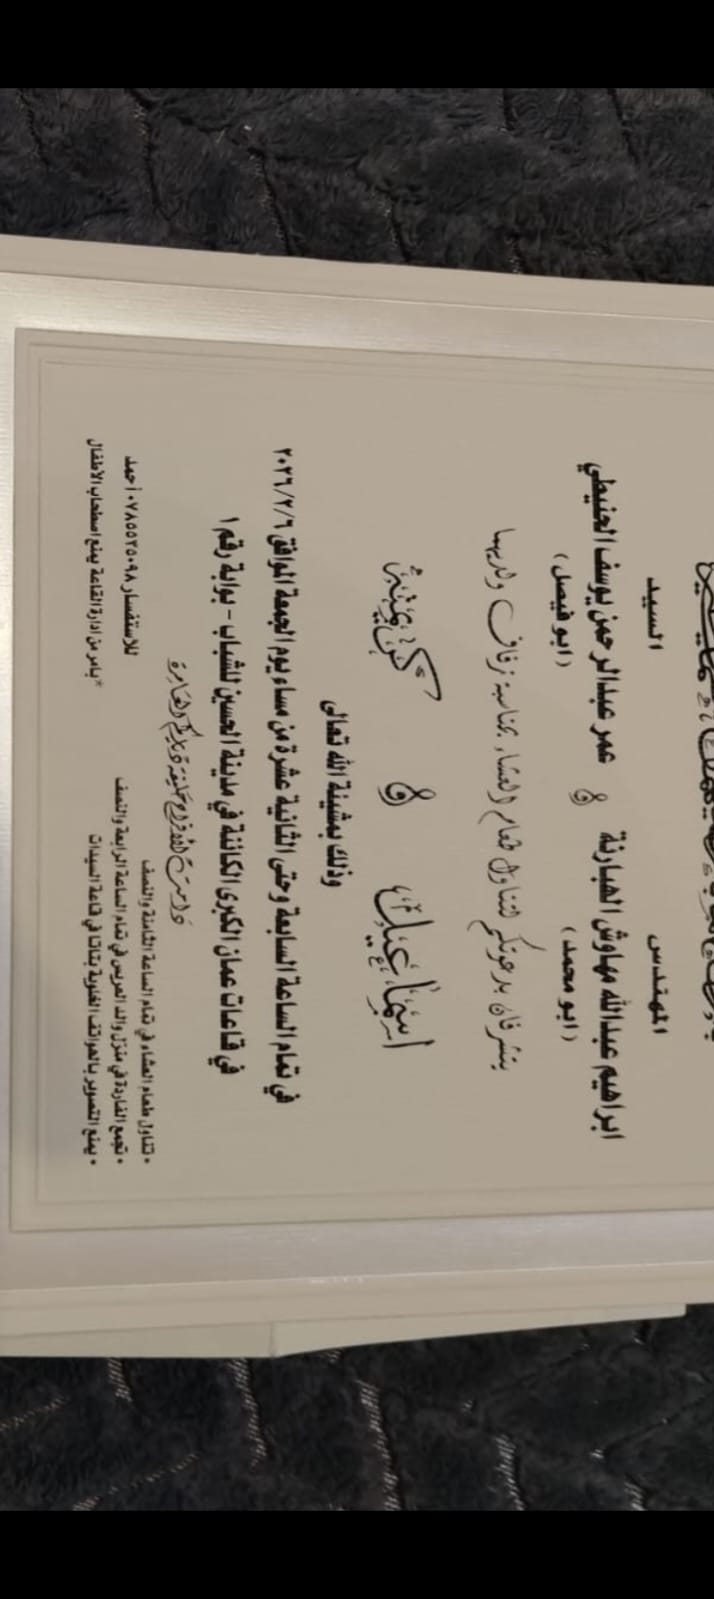 المهندس
السيد
ابراهيم عبدالله مهاوش الهبارنة & عمر عبدالرحمن يوسف الحنيطي
(ابو محمد)
(ابو فيصل)
يتشرفان بدعوتكم لتناول طعام العشاء بمناسبة زفاف ولديهما
اسماعيل &
وذلك بمشيئة الله تعالى
في تمام الساعة السابعة وحتى الثانية عشرة من مساء يوم الجمعة الموافق ٢٠٢٦/٢/٦
في قاعات عمان الكبرى الكائنة في مدينة الحسين للشباب - بوابة رقم ١
دياركم العامرة
• تناول طعام العشاء في تمام الساعة الثامنة والنصف
• تجمع الفاردة في منزل والد العريس في تمام الساعة الرابعة والنصف
• يمنع التصوير بالهواتف الخلوية بتاتا في قاعة السيدات
للاستفسار ٠٧٨٥٥٢٥٠٩٨ أحمد
*بامر من ادارة القاعة يمنع اصطحاب الاطفال